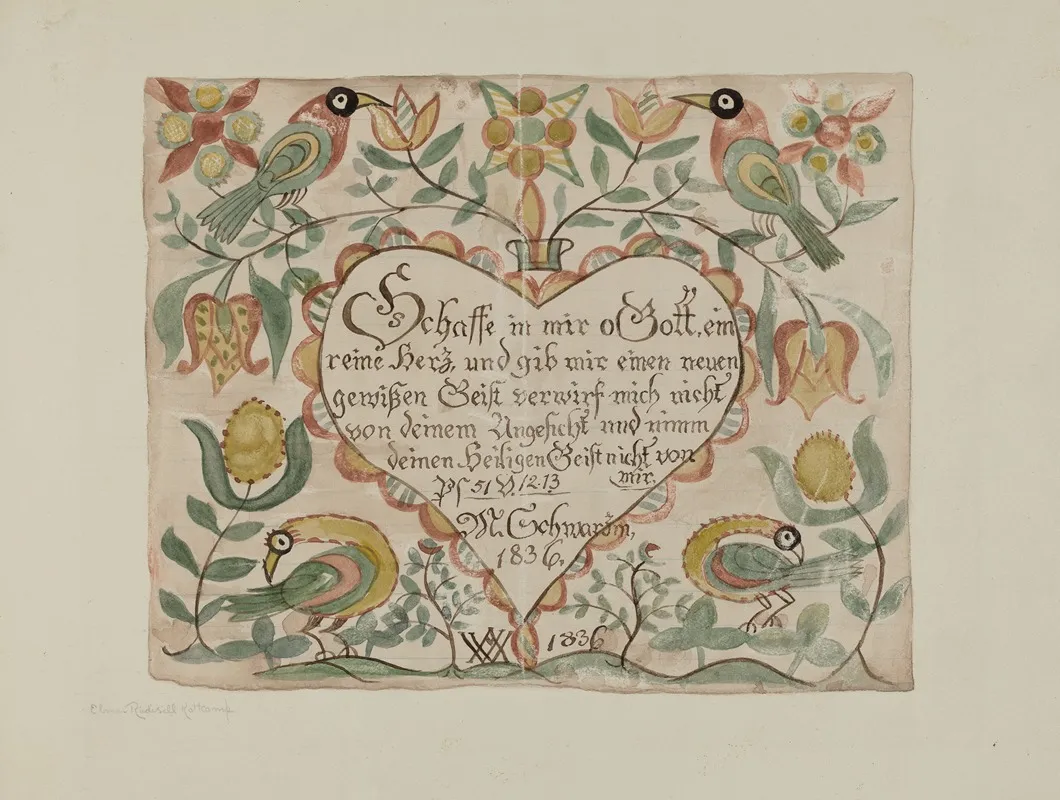 Schaffe in mir o Gott, ein
reine Herz, und gib mir einen neuen
gewißen Geist verwirf mich nicht
von deinem Angesicht und nimm
deinen Heiligen Geist nicht von
mir.
Ps 51 V. 12. 13
M.
1836.
1836